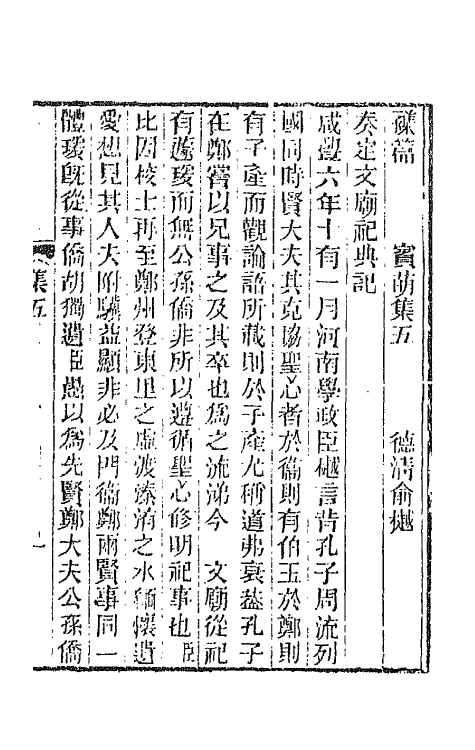 襍篇　賓萌集五　德清俞樾
奏定文廟祀典記
咸豐六年十有一月河南學政臣樾言昔孔子周流列
國同時賢大夫其克協聖心者於衞則有伯玉於鄭則
有子產而觀論語所載則於子產尤稱道弗衰葢孔子
在鄭嘗以兄事之及其卒也爲之流涕今　文廟從祀
有蘧瑗而無公孫僑非所以遵循聖心修明祀事也臣
比因校士再至鄭州登東里之虛渡溱洧之水緬懷遺
愛想見其人夫附驥益顯非必及門衞鄭兩賢事同一
體瑗既從事僑胡獨遺臣愚以爲先賢鄭大夫公孫僑
集五
一